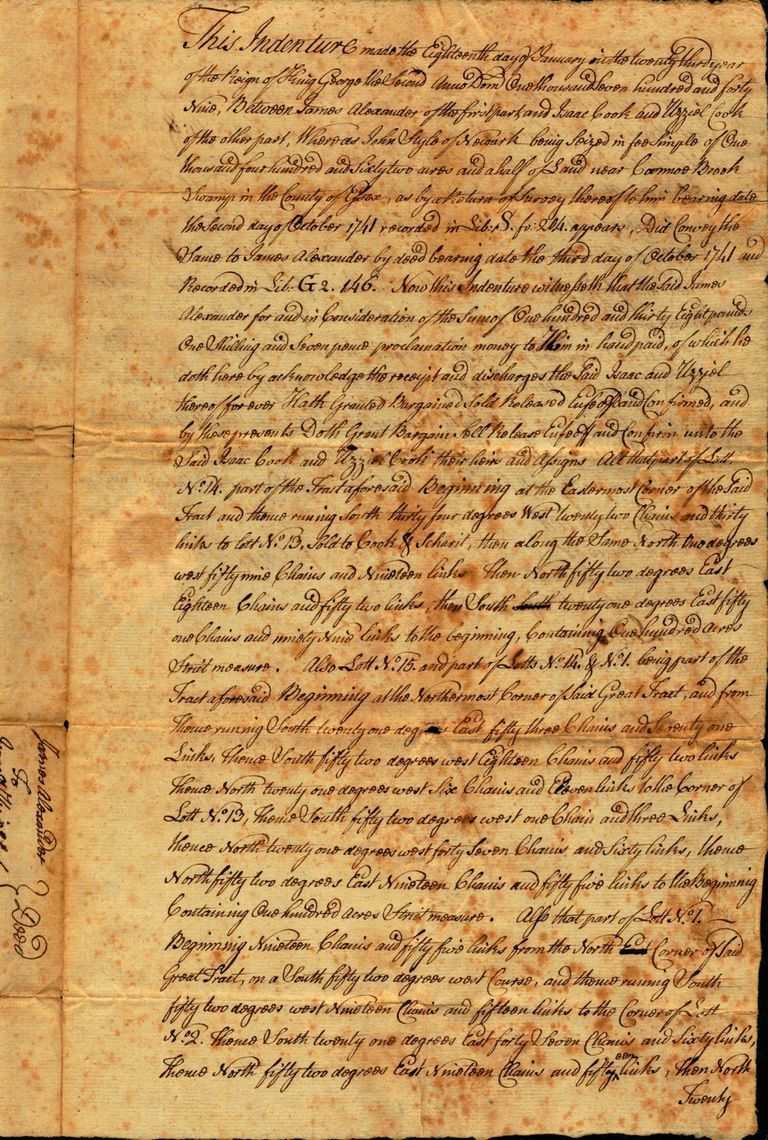 This Indenture made the Eighteenth day of January in the twenty third year
of the Reign of King George the Second Anno Dom One thousand Seven hundred and forty
Nine, Between James Alexander of the first part, and Isaac Cook and Uzziel Cook
of the other part, Whereas John Style of Newark being Seized in fee Simple of One
thousand four hundred and Sixty two acres and a half of Land near Cannoe Brook
Swamp in the County of Essex, as by a Return or Survey thereof to him bearing date
the Second day of October 1741 recorded in Lib: S. fo: 214. appears, Did Convey the
Same to James Alexander by deed bearing date the third day of October 1741 and
Recorded in Lib. G2. 146. Now this Indenture witnesseth that the Said James
Alexander for and in Consideration of the Sum of One hundred and thirty Eight pounds
One Shilling and Seven pence proclamation money to Him in hand paid, of which he
doth here by acknowledge the receipt and discharges the Said Isaac and Uzziel
thereof for ever Hath Granted Bargained Sold Released Enfeoff and Confirmed, and
by these presents Doth Grant Bargain Sell Release Enfeoff and Confirm unto the
Said Isaac Cook and Uzziel Cook their heirs and Assigns All that part of Lott
No. 14. part of the Tract aforesaid Beginning at the Eastermost Corner of the Said
Tract and thence running South thirty four degrees West twenty two Chains and thirty
links to Lott No. 13. Sold to Cook & then along the Same North One degrees
west fifty nine Chains and Nineteen links Then North fifty two degrees East
Eighteen Chains and fifty two links, then South South twenty one degrees East fifty
one Chains and ninety Nine links to the beginning, Containing One hundred Acres
Strict measure. Also Lott No. 15. and part of Lotts No. 14. & No. 1. being part of the
Tract aforesaid Beginning at the Northermost Corner of Said Great Tract, and from
thence running South twenty one degrees East fifty three Chains and Seventy one
Links, Thence South fifty two degrees west Eighteen Chains and fifty two links
Thence North twenty one degrees west Six Chains and Eleven links to the Corner of
Lott No. 13, Thence South fifty two degrees west one Chain and three Links,
thence North twenty one degrees west forty Seven Chains and Sixty links, thence
North fifty two degrees East Nineteen Chains and fifty five links to the Beginning
Containing One hundred Acres Strict measure. Also that part of Lott No. 1.
Beginning Nineteen Chains and fifty five links from the North East Corner of Said
Great Tract, on a South fifty two degrees west Course, and thence running South
fifty two degrees west Nineteen Chains and fifteen links to the Corner of Lott
No. 2. Thence South twenty one degrees East forty Seven Chains and Sixty links,
thence North fifty two degrees East Nineteen Chains and fifteen links, then North
Twenty
James Alexander
To
Deed